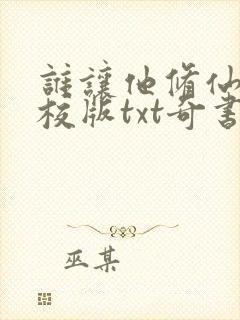 誰讓他修仙
校版txt奇書
巫某